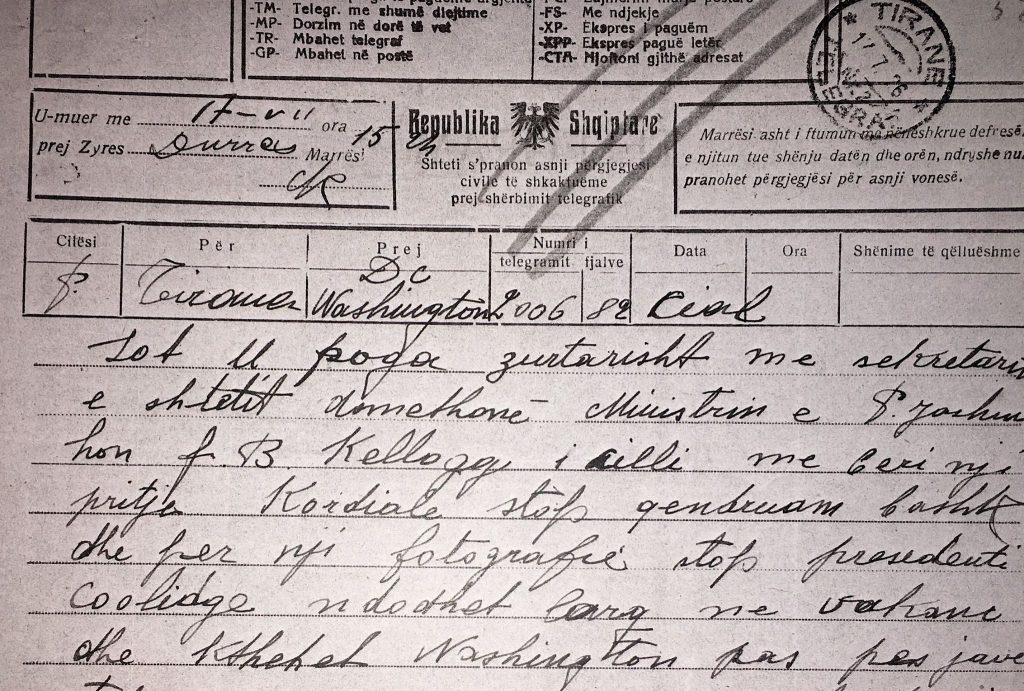 -TM- Telegr. me shumë diejtime
-MP- Dorzim në dorë të vet
-TR- Mbahet telegraf
-GP- Mbahet në postë
-FS- Me ndjekje
-XP- Ekspres i paguëm
-XPP- Ekspres paguë letër
-CTA- Njoftoni gjithë adresat
TIRANE
17.7.26
TELEGRAF
U-muer me 17-VII ora 15
prej Zyres Durres Marrësi
Republika Shqiptare
Shteti s'pranon asnji përgjegjësi
civile të shkaktuëme
prej shërbimit telegrafik
Marrësi asht i ftumun me nënëshkrue defresë,
e njitun tue shënju datën dhe orën, ndryshe nu
pranohet përgjegjësi për asnji vonesë.
Citësi Për Prej Numri i telegramit fjalve Data Ora Shënime të qëllueshme
P. Tirana Dc Washington 2006 82 Cial
Sot U poqa zurtarisht me sekretarin
e shtetit domethonë Ministrin e P. Jashm
hon f. B. Kellogg i cilli me beri nji
pritje Kordiale stop qendruam bashk
dhe per nji fotografië stop presidenti
Coolidge ndodhet larg ne vakanc
dhe kthehet Washington pas pes jave